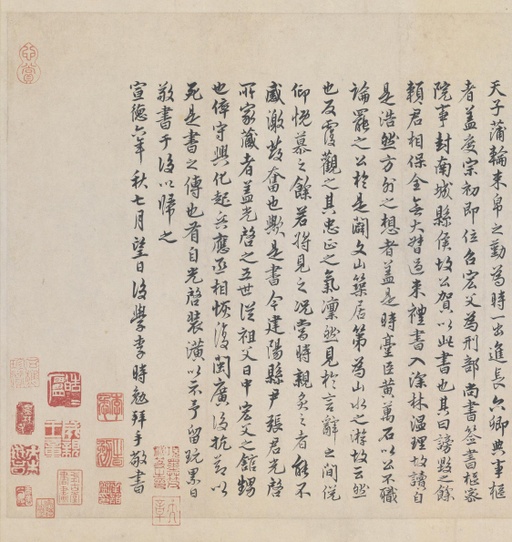 天子蒲輪束帛之勤為時一出進長六卿典事樞
者蓋度宗初即位召宏父為刑部尚書簽書樞密
院事封南城縣侯故公賀以此書也其曰謗毀之餘
賴君相保全無大咎過來禮書入深林溫理故讀自
是浩然方外之想者蓋是時臺臣黃萬石以公不職
論罷之公於是闢文山築居第為山水之游故云然
也反覆觀之其忠正之氣凜然見於言辭之間俛
仰慨慕之餘若將見之況當時親炙之者能不
感激發奮也歟是書今建陽縣尹張君光啓
所家藏者蓋光啓之五世從祖父日中宏父之館甥
也倅守興化起兵應丞相恢復閩廣後抗節以
死是書之傳也有自光啓裝潢以示予留玩累日
敬書于後以歸之
宣德六年秋七月望日後學李時勉拜手敬書
心賞